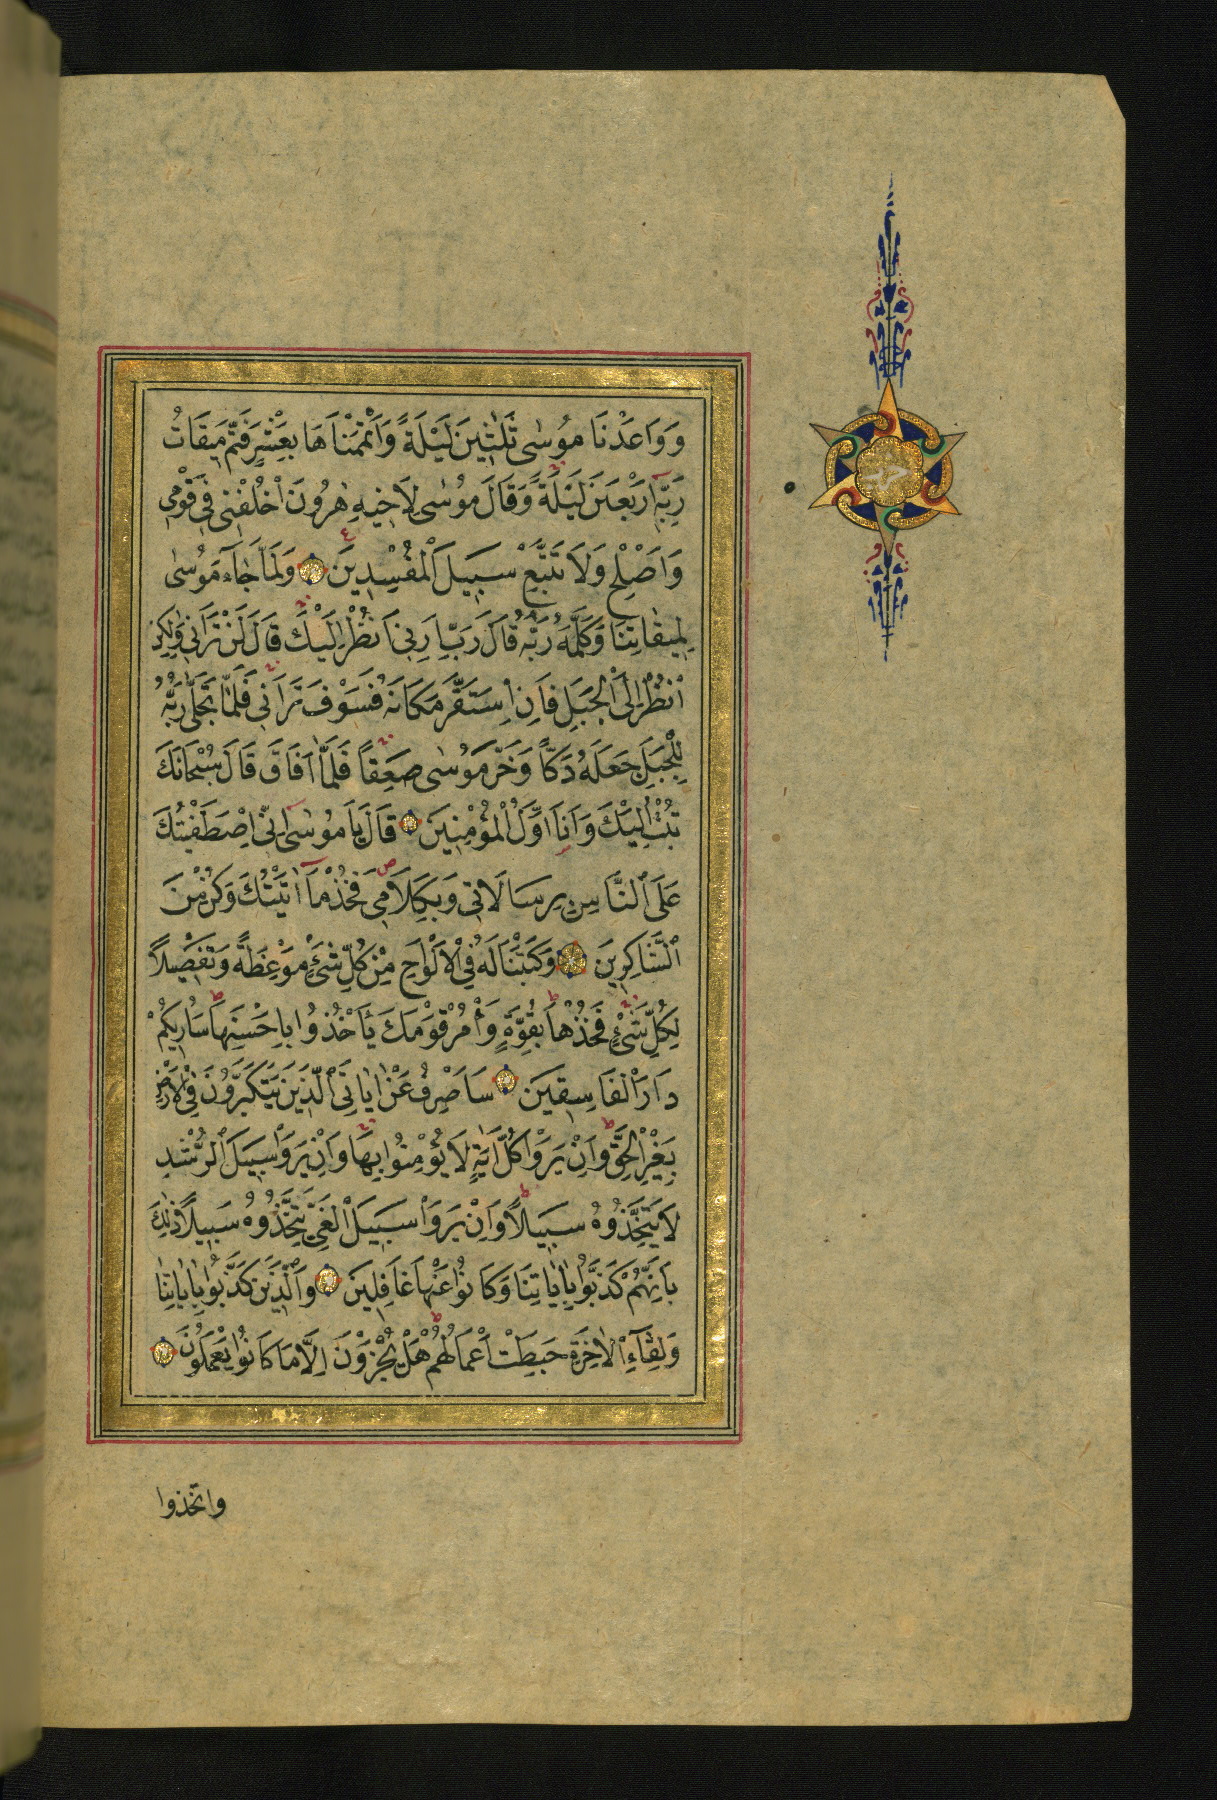 وَوَاعَدْنَا مُوسٰى ثَلٰثِينَ لَيْلَةً وَاَتْمَمْنَاهَا بِعَشْرٍ فَتَمَّ مِيقَاتُ
رَبِّهِ اَرْبَعِينَ لَيْلَةً وَقَالَ مُوسٰى لِاَخِيهِ هٰرُونَ اخْلُفْنِى فِى قَوْمِى
وَاَصْلِحْ وَلَا تَتَّبِعْ سَبِيلَ الْمُفْسِدِينَ وَلَمَّا جَاءَ مُوسٰى
لِمِيقَاتِنَا وَكَلَّمَهُ رَبُّهُ قَالَ رَبِّ اَرِنِى اَنْظُرْ اِلَيْكَ قَالَ لَنْ تَرَانِى وَلٰكِنِ
انْظُرْ اِلَى الْجَبَلِ فَاِنِ اسْتَقَرَّ مَكَانَهُ فَسَوْفَ تَرَانِى فَلَمَّا تَجَلّٰى رَبُّهُ
لِلْجَبَلِ جَعَلَهُ دَكًّا وَخَرَّ مُوسٰى صَعِقًا فَلَمَّا اَفَاقَ قَالَ سُبْحَانَكَ
تُبْتُ اِلَيْكَ وَاَنَا اَوَّلُ الْمُؤْمِنِينَ قَالَ يَا مُوسٰى اِنِّى اصْطَفَيْتُكَ
عَلَى النَّاسِ بِرِسَالَاتِى وَبِكَلَامِى فَخُذْ مَا اٰتَيْتُكَ وَكُنْ مِنَ
الشَّاكِرِينَ وَكَتَبْنَا لَهُ فِى الْاَلْوَاحِ مِنْ كُلِّ شَىْءٍ مَوْعِظَةً وَتَفْصِيلًا
لِكُلِّ شَىْءٍ فَخُذْهَا بِقُوَّةٍ وَأْمُرْ قَوْمَكَ يَأْخُذُوا بِاَحْسَنِهَا سَاُرِيكُمْ
دَارَ الْفَاسِقِينَ سَاَصْرِفُ عَنْ اٰيَاتِىَ الَّذِينَ يَتَكَبَّرُونَ فِى الْاَرْضِ
بِغَيْرِ الْحَقِّ وَاِنْ يَرَوْا كُلَّ اٰيَةٍ لَا يُؤْمِنُوا بِهَا وَاِنْ يَرَوْا سَبِيلَ الرُّشْدِ
لَا يَتَّخِذُوهُ سَبِيلًا وَاِنْ يَرَوْا سَبِيلَ الْغَىِّ يَتَّخِذُوهُ سَبِيلًا ذٰلِكَ
بِاَنَّهُمْ كَذَّبُوا بِاٰيَاتِنَا وَكَانُوا عَنْهَا غَافِلِينَ وَالَّذِينَ كَذَّبُوا بِاٰيَاتِنَا
وَلِقَاءِ الْاٰخِرَةِ حَبِطَتْ اَعْمَالُهُمْ هَلْ يُجْزَوْنَ اِلَّا مَا كَانُوا يَعْمَلُونَ
واتخذوا
حزب